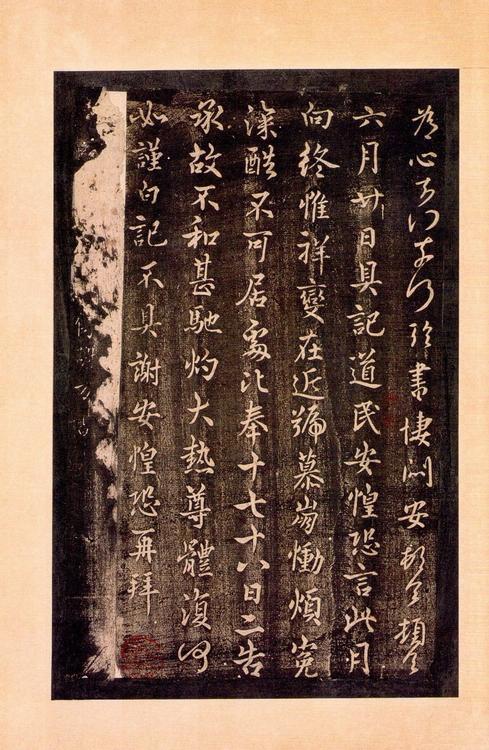 為心奈何奈何臨書悽悶安頓首頓首
六月廿日具記道民安惶恐言此月
向終惟祥變在近號慕崩慟煩冤
深酷不可居處比奉十七十八日二告
承故不和甚馳灼大熱尊體復何
如謹白記不具謝安惶恐再拜